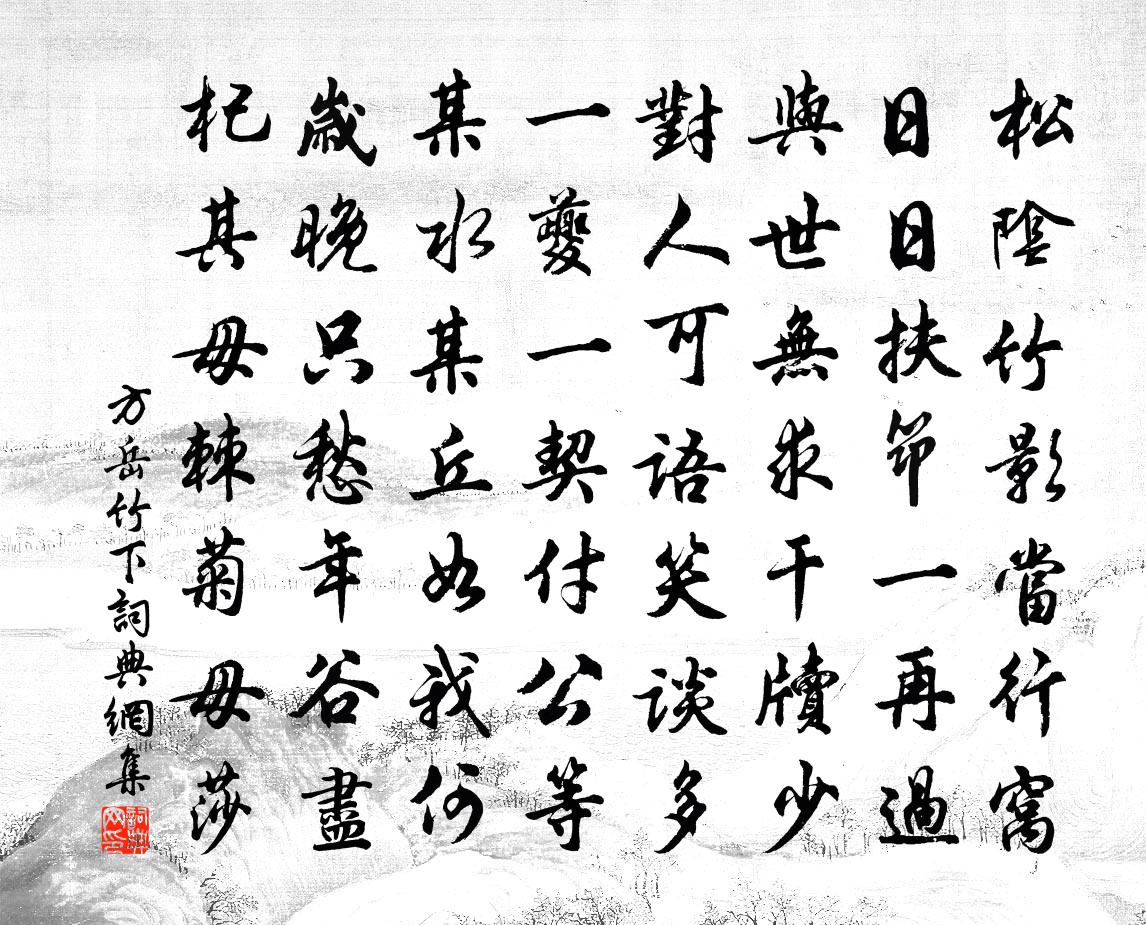 松陰竹影當行窩
日日扶筇一再過
與世無求干牘少
對人可語笑談多
一夔一契付公等
某水某丘如我何
歲晚只愁年谷盡
杞其毋棘菊毋莎
方岳竹下詞典網集
詞典網印